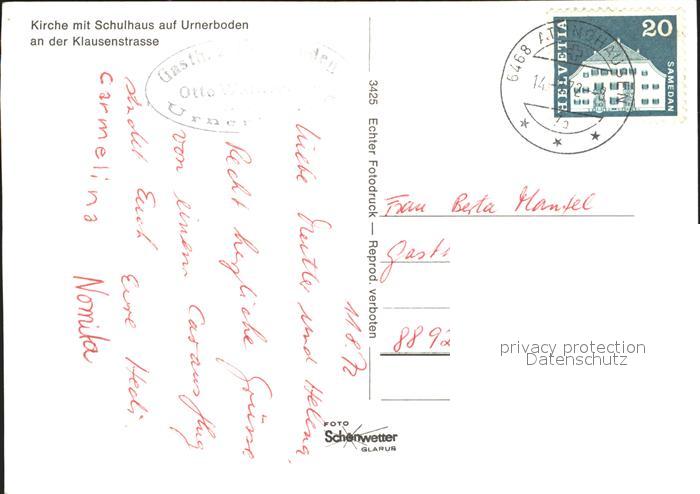 Kirche mit Schulhaus auf Urnerboden
an der Klausenstrasse
Gasth.
Otto
Urner
3425 Echter Fotodruck — Reprod. verboten
HELVETIA
20
SAMEDAN
6468 ATTINGHAUSEN
11.8.72
Liebe Mutter und Helena,
Recht herzliche Grüsse
von einem Carausflug
sendet Euch Eure Hedi.
Carmelina
Nomika
Frau Berta
Gasth
8892
privacy protection
Datenschutz
FOTO
Schönwetter
GLARUS